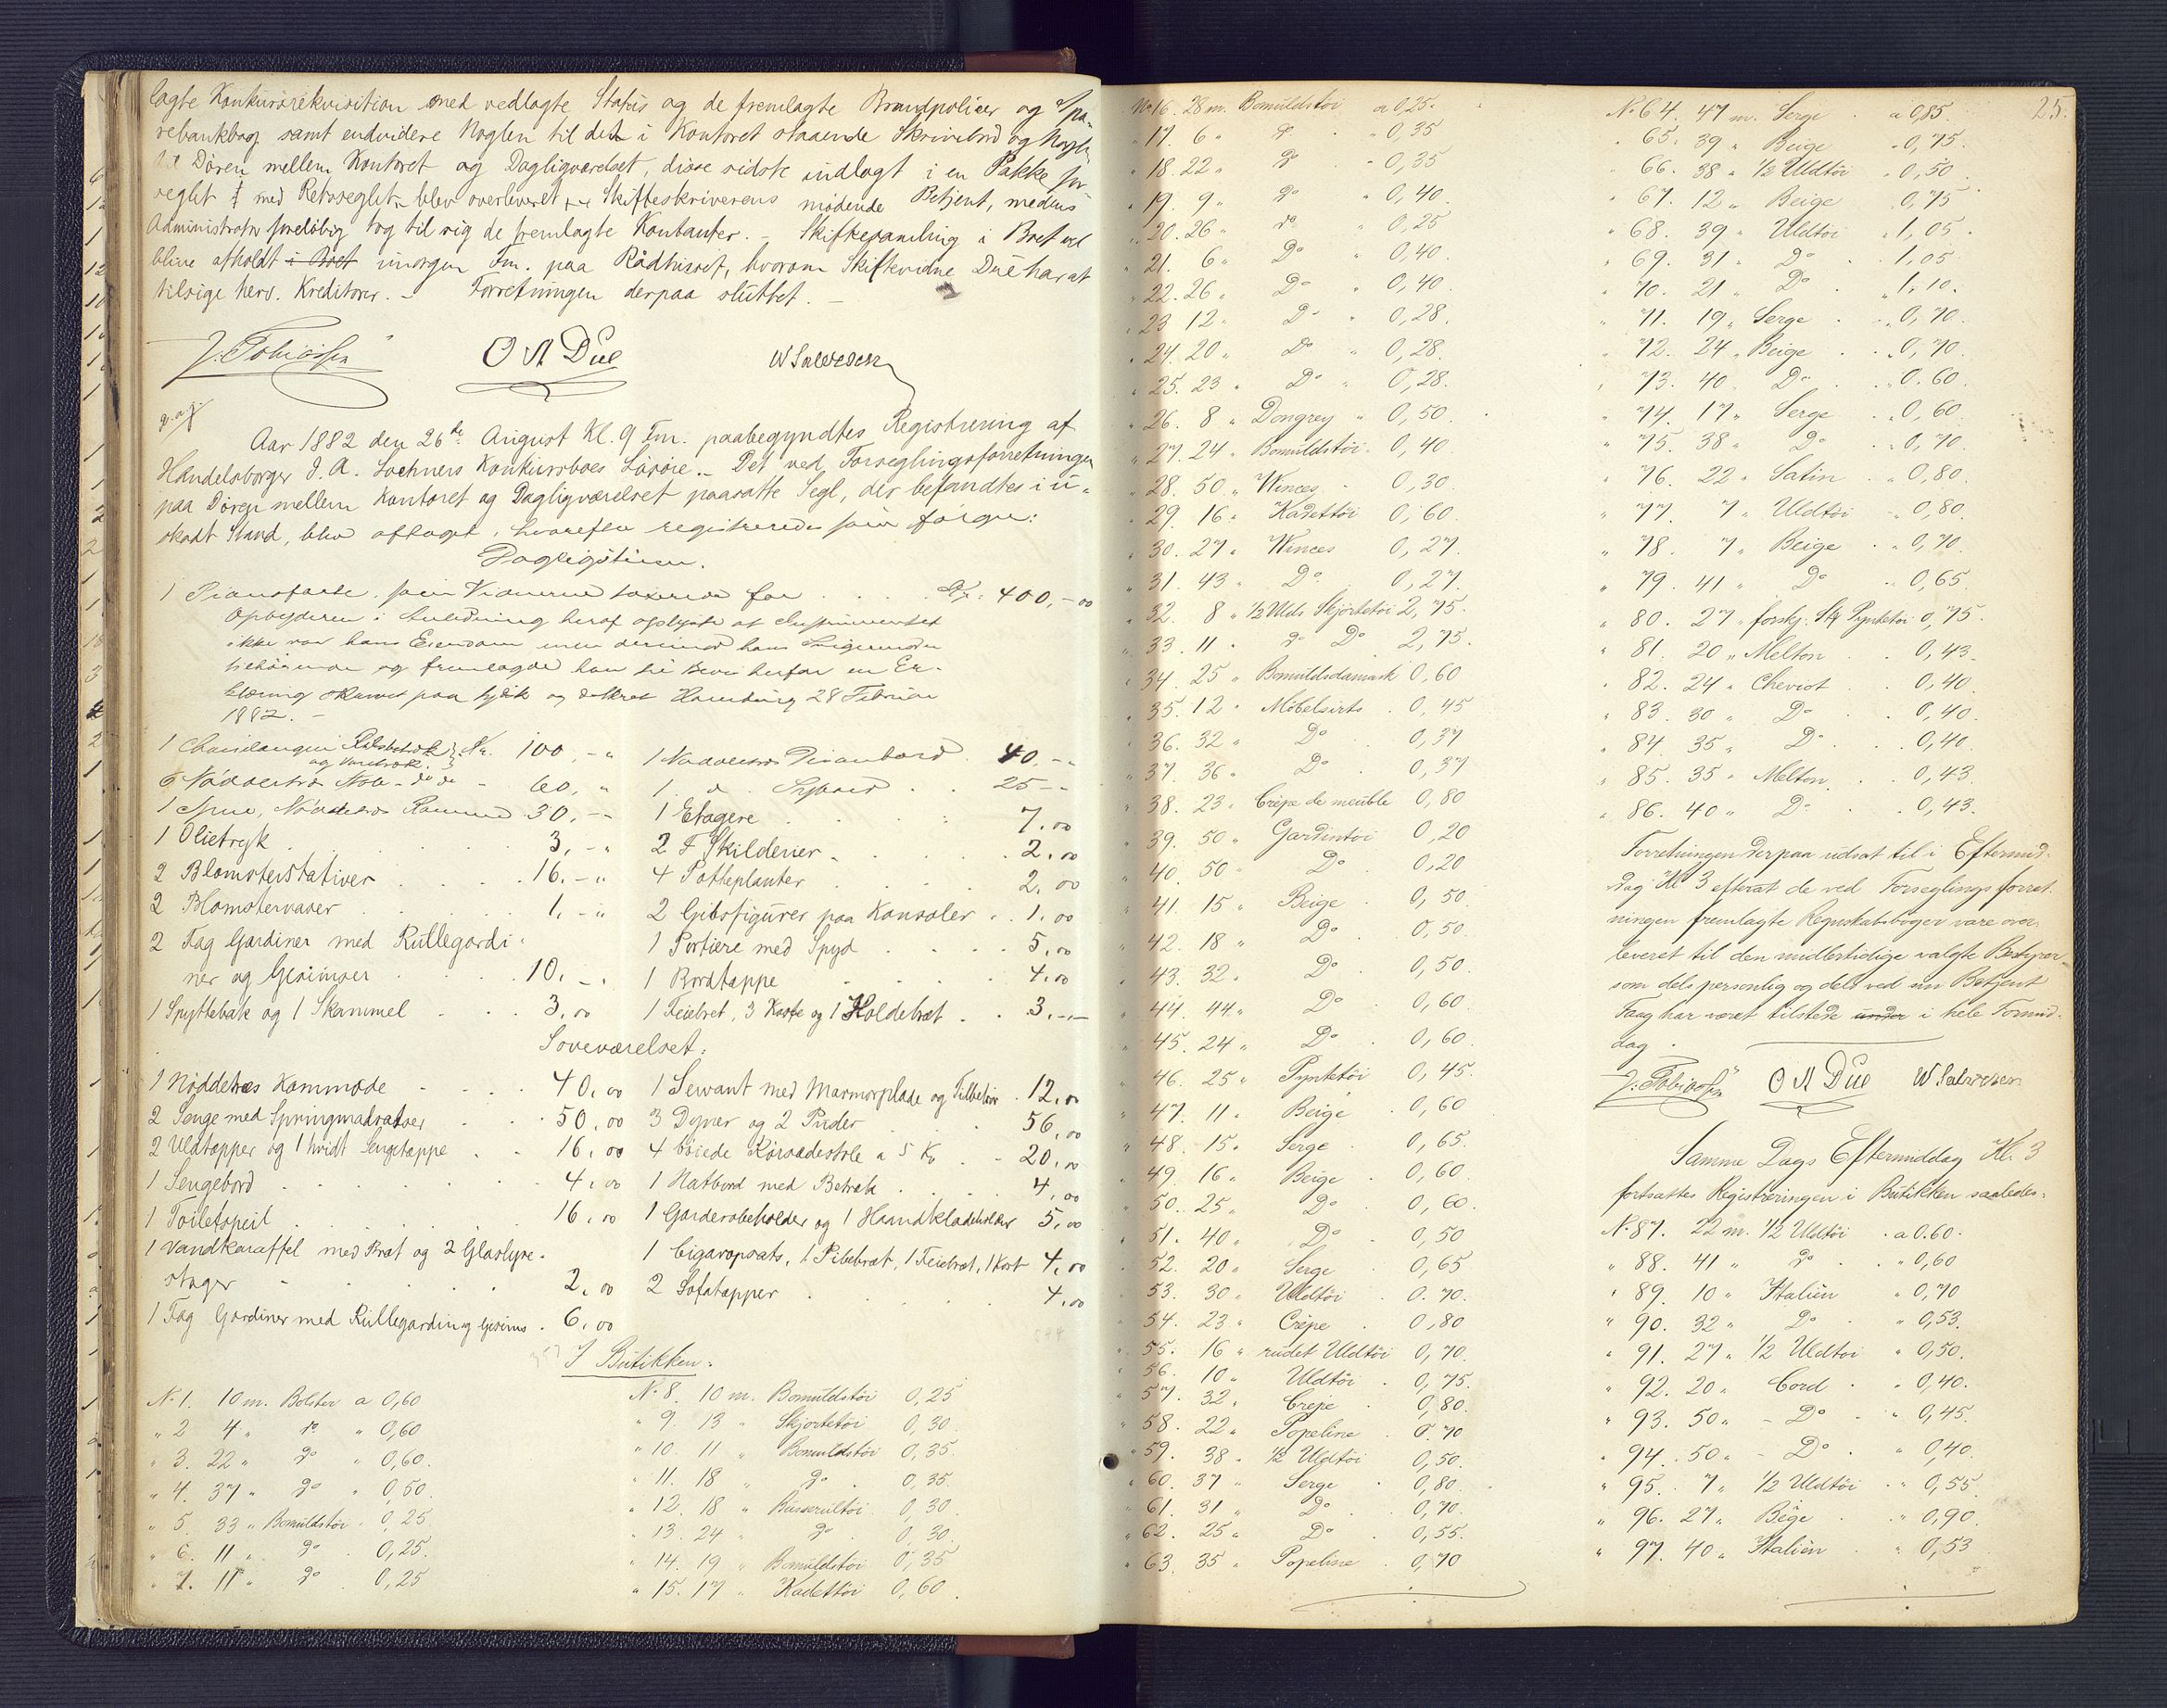 lagte Konkursrekvisition med vedlagte Status og de fremlagte Brandpolicer og Spa-
rebankbog samt endvidere Nøglen til det i Kontoret staaende Skrivebord og Nøglen
til Døren mellem Kontoret og Dagligværelset, disse sidste indlagt i en Pakke for-
seglet med Retsseglet blev overleveret Skifteskriverens mødende Betjent, medens
Administrator foreløbig tog til sig de fremlagte Kontanter. – Skiftesamling i Boet vil
blive afholdt i Boet imorgen Fm. paa Rådhuset, hvorom Skiftevidne Due har at
tilsige herv. Kreditorer. – Forretningen derpaa sluttet. –
J. Tobiassen O A Due W Salvesen
Aar 1882 den 26de August Kl. 9 Fm. paabegyndtes Registrering af
Handelsborger J. A. Lochners Konkursboes Løsøre. – Det ved Forseglingsforretningen
paa Døren mellem Kontoret og Dagligværelset paasatte Segl, der befandtes i u-
skadt Stand, blev aftaget, hvorefter registreredes som følger:
Dagligstuen.
1 Pianoforte som Vidnerne taxerede for . . . . Kr. 400,-00
Opbyderen i Anledning heraf oplyste at Instrumentet
ikke var hans Eiendom men derimod hans
tilhørende og fremlagde han til Bevis herfor en Er-
klæring skrevet paa tydsk og dateret Hamburg 28 Februar
1882. –
1 Chaiselongue Ridsbetræk og Varetræk Kr. 100,-"
6 Nøddetræs Stole do do - 60,"
1 Speil, Nøddetræs Ramme 30,-"
1 Olietryk . . . 3,-"
2 Blomsterstativer . . . 16.-"
2 Blomstervaser . . . 1,-"
2 Fag Gardiner med Rullegardi-
ner og Gesimser . . . 10.-
1 Spyttebak og 1 Skammel . . . 3.00
1 Nøddetræs Divanbord . 40,-"
1 d. Sybord . . 25--
1 Etagere . . . 7.00
2 Skilderier . . . 2.00
4 Potteplanter . . . 2.00
2 Gibsfigurer paa Konsoler . . 1.00
1 Portiere med Spyd . . . 5.00
1 Bordtæppe . . . 4.00
1 Feiebret, 3 Koste og 1 Holdebræt . . 3.--
Soveværelset.
1 Nøddetræs Kommode . . . 40.00
2 Senge med Springmadratser . . 50.00
2 Uldtæpper og 1 hvidt Sengetæppe . . 16.00
1 Sengebord . . . 4.00
1 Toiletspeil . . . 16.00
1 Vandkaraffel med Bræt og 2 Glaslyse-
stager . . . 2.00
1 Fag Gardiner med Rullegardin og Gesims . 6.00
1 Servant med Marmorplade og Tilbehør . 12.00
3 Dyner og 2 Puder . . . 56.00
4 bøiede Rørsædestole a 5 Kr . . 20.00
1 Natbord med Betræk . . . 4.00
1 Garderobeholder og 1 Haandklædeholder 5.00
1 Cigaropsats, 1 Pibebræt, 1 Feiebræt, 1 Kost 4.00
2 Sofatæpper . . . 4.00
I Butikken.
No 1. 10 m. Bolster a 0,60
" 2 4 " do " 0,60
" 3. 22 " do " 0,60.
" 4. 37 " do " 0,50.
" 5. 33 " Bomuldstøi . 0,25.
" 6. 11 " do . 0,25.
" 7. 11 " do . 0,25
No 8. 10 m. Bomuldstøi 0,25
" 9. 13 " Skjortetøi 0,30.
" 10. 11 " Bomuldstøi 0,35.
" 11. 18 " do . 0,35.
" 12. 18 " Busserultøi 0,30
" 13. 24 " do . 0,30.
" 14. 19 " Bomuldstøi 0,35
" 15. 17 " Kadettøi 0,60.
No 16. 28 m. Bomuldstøi a 0,25.
" 17. 6 " do . " 0,35
" 18. 22 " do - 0,35
" 19. 9 " do " 0,40.
" 20. 26 " do " 0,25
" 21. 6 " Do " 0,40.
" 22. 26 " Do " 0,40.
" 23 12 " Do " 0,28.
" 24. 20 " Do " 0,28.
" 25. 23 " Do " 0,28.
" 26. 8 " Dongrey " 0,50.
" 27. 24 " Bomuldstøi . 0,40
" 28. 50 " Winces . 0,30.
" 29. 16 " Kadettøi 0,60.
" 30. 27 " Winces 0,27.
" 31. 43 " Do. 0,27.
" 32. 8 " 1/2 Ulds Skjortetøi 2,75.
" 33. 11 " do Do 2,75.
" 34. 25 " Bomuldsdamask 0,60
" 35. 12 " Møbelsirts . 0,45
" 36. 32 " Do . 0,37
" 37. 36 " Do . 0,37
" 38. 23 " Crêpe de meuble 0,80
" 39. 50 " Gardintøi 0,20
" 40. 50 " Do 0,20
" 41. 15 " Beige . 0,50.
" 42. 18 " Do . 0,50.
" 43. 32 " Do . 0,50.
" 44. 44 " Do . 0,60
" 45. 24 " Do . 0,60.
" 46. 25 " Pyntetøi 0,45.
" 47. 11 " Beige . 0,60
" 48. 15 " Serge . 0,65.
" 49. 16 " Beige . 0,60.
" 50. 25 " Do . 0,60.
" 51. 40 " Do . 0,50
" 52. 20 " Serge . 0,65
" 53. 30 " Uldtøi . 0.70.
" 54. 23 " Crêpe . 0,80
" 55. 16 " rudet Uldtøi 0,70.
" 56. 10 " Uldtøi . 0,75.
" 57. 32 " Crepe . 0,80.
" 58. 22 " Popeline . 0.70
" 59. 38 " 1/2 Uldtøi 0,50.
" 60. 37 " Serge . 0,80.
" 61. 31 " Do . 0,70.
" 62. 25 " Do . 0,55.
" 63. 35 " Popeline . 0,70
25.
No 64. 47 m. Serge . a 0,85.
" 65. 39 " Beige . 0,75.
" 66. 38 " 1/2 Uldtøi " 0,50
" 67. 12 " Beige 0,75
" 68. 39 " Uldtøi " 1,05.
" 69. 31 " Do " 1,05
" 70. 21 " Do . " 1,10.
" 71. 19 " Serge . " 0,70.
" 72. 24 " Beige . . 0,70.
" 73. 40. Do . . 0.60.
" 74. 17 " Serge . 0,60.
" 75. 38 " Do . . 0,70.
" 76. 22 " Satin . " 0,80.
" 77. 7 " Uldtøi - 0,80.
" 78. 7 " Beige . " 0,70.
" 79. 41 " Do . 0,65.
" 80. 27 " forskj. Stk Pyntetøi 0,75.
" 81. 20 " Melton . . 0,43.
" 82. 24 " Cheviot . 0,40.
" 83. 30 " Do . . 0,40.
" 84. 35 " Do . . 0,40.
" 85. 35 " Melton . . 0,43.
" 86. 40 " Do . . 0,43.
Forretningen derpaa udsat til i Eftermid-
dag Kl 3 efterat de ved Forseglingsforret-
ningen fremlagte Regnskabsbøger vare over-
leveret til den midlertidige valgte Bestyrer
som dels personlig og dels ved sin Betjent
Faag har været tilstede under i hele Formid-
dag.
J. Tobiassen O A Due W Salvesen
Samme Dags Eftermiddag Kl. 3
fortsattes Registreringen i Butikken saaledes:
No 87. 22 m. 1/2 Uldtøi . a 0.60.
" 88. 41 " do . " 0,60
" 89. 10 " Italien " 0,70
" 90. 32 " Do . " 0,53.
" 91. 27 " 1/2 Uldtøi " 0,50.
" 92. 20 " Cord . " 0,40.
" 93. 50 " - Do . " 0,45.
" 94. 50 " - Do . " 0,40.
" 95. 7 " 1/2 Uldtøi . " 0,55.
" 96. 27 " Bége . " 0,90.
" 97. 40 " Italien . " 0,53